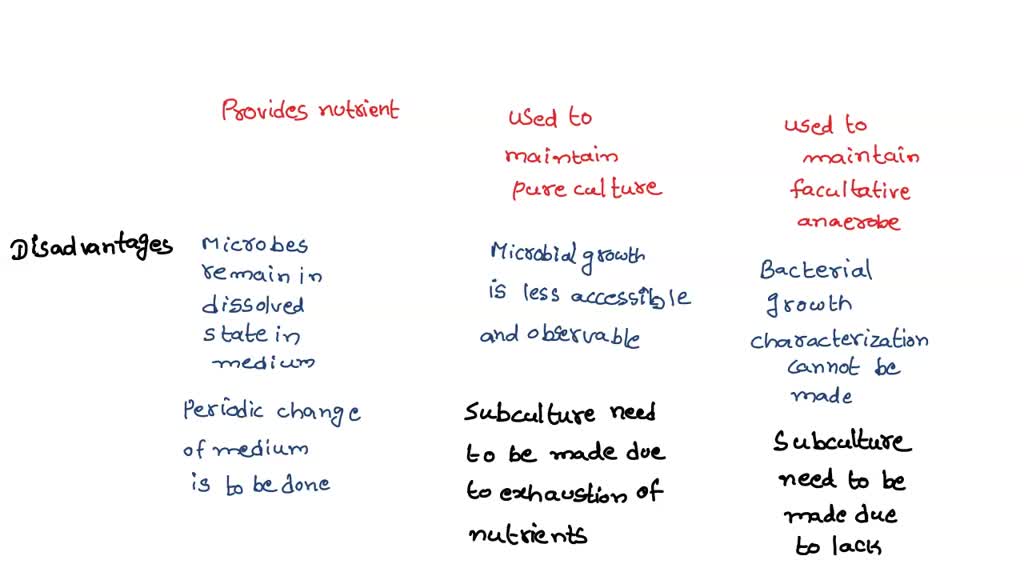 Provides nutrient
used to
maintain
pure culture
used to
maintain
facultative
anaerobe
Disadvantages
Microbes
remain in
dissolved
state in
medium
Periodic change
of medium
is to be done
Microbial growth
is less accessible
and observable
Subculture need
to be made due
to exhaustion of
nutrients
Bacterial
growth
characterization
cannot be
made
Subculture
need to be
made due
to lack